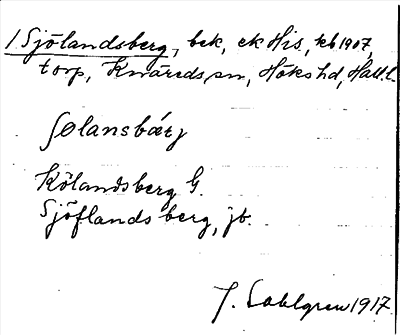 1. Sjölandsberg, bek, ek His, kb 1907,
torp, Knäreds sn, Höks hd, Hall. l.
ʃølansbærj
Kölandsberg G.
Sjöflandsberg, jb.
J. Sahlgren 1917